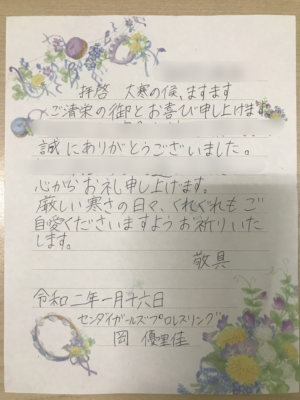 拝啓 大寒の候、ますます
ご清栄の御とお喜び申し上げます。
誠にありがとうございました。
心からお礼申し上げます。
厳しい寒さの日々、くれぐれもご
自愛くださいますようお祈りいた
します。
敬具
令和二年一月十六日
センダイガールズプロレスリング
岡 優里佳